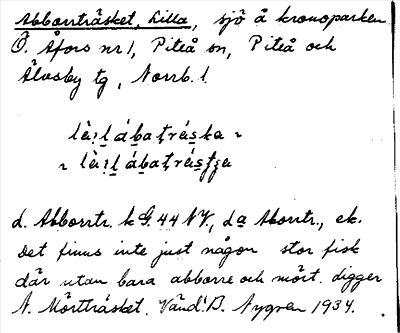 Abborrträsket, Lilla, sjö å kronoparken
Ö. Åfors nr 1, Piteå sn, Piteå och
Älvsby tg, Norrb. l.
là:l ábatráska
là:l ábatrás
L. Abborrtr. k G. 44 NV., La Aborrtr., ek.
Det finns inte just någon stor fisk
där utan bara abborre och mört. Ligger
N. Mörtträsket. Vänd! D. Nygren 1934.